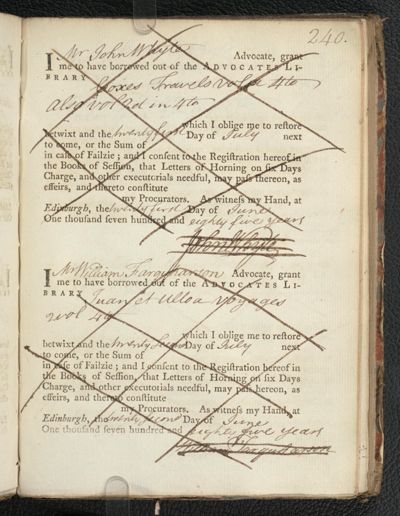 240.
I Mr John Whyte Advocate, grant
me to have borrowed out of the ADVOCATES LI-
BRARY Coxes Travels vol 1st 4to
also vol 2d in 4to
which I oblige me to restore
betwixt and the twenty first Day of July next
to come, or the Sum of
in case of Failzie; and I consent to the Registration hereof in
the Books of Session, that Letters of Horning on six Days
Charge, and other executorials needful, may pass thereon, as
effeirs, and thereto constitute
my Procurators. As witness my Hand, at
Edinburgh, the twenty first Day of June
One thousand seven hundred and eighty five years
John Whyte
I Mr William Farquharson Advocate, grant
me to have borrowed out of the ADVOCATES LI-
BRARY Juan et Ulloa voyages
2 vol 4to
which I oblige me to restore
betwixt and the twenty second Day of July next
to come, or the Sum of
in case of Failzie; and I consent to the Registration hereof in
the Books of Session, that Letters of Horning on six Days
Charge, and other executorials needful, may pass hereon, as
effeirs, and thereto constitute
my Procurators. As witness my Hand, at
Edinburgh, the twenty second Day of June
One thousand seven hundred and eighty five years
William Farquharson